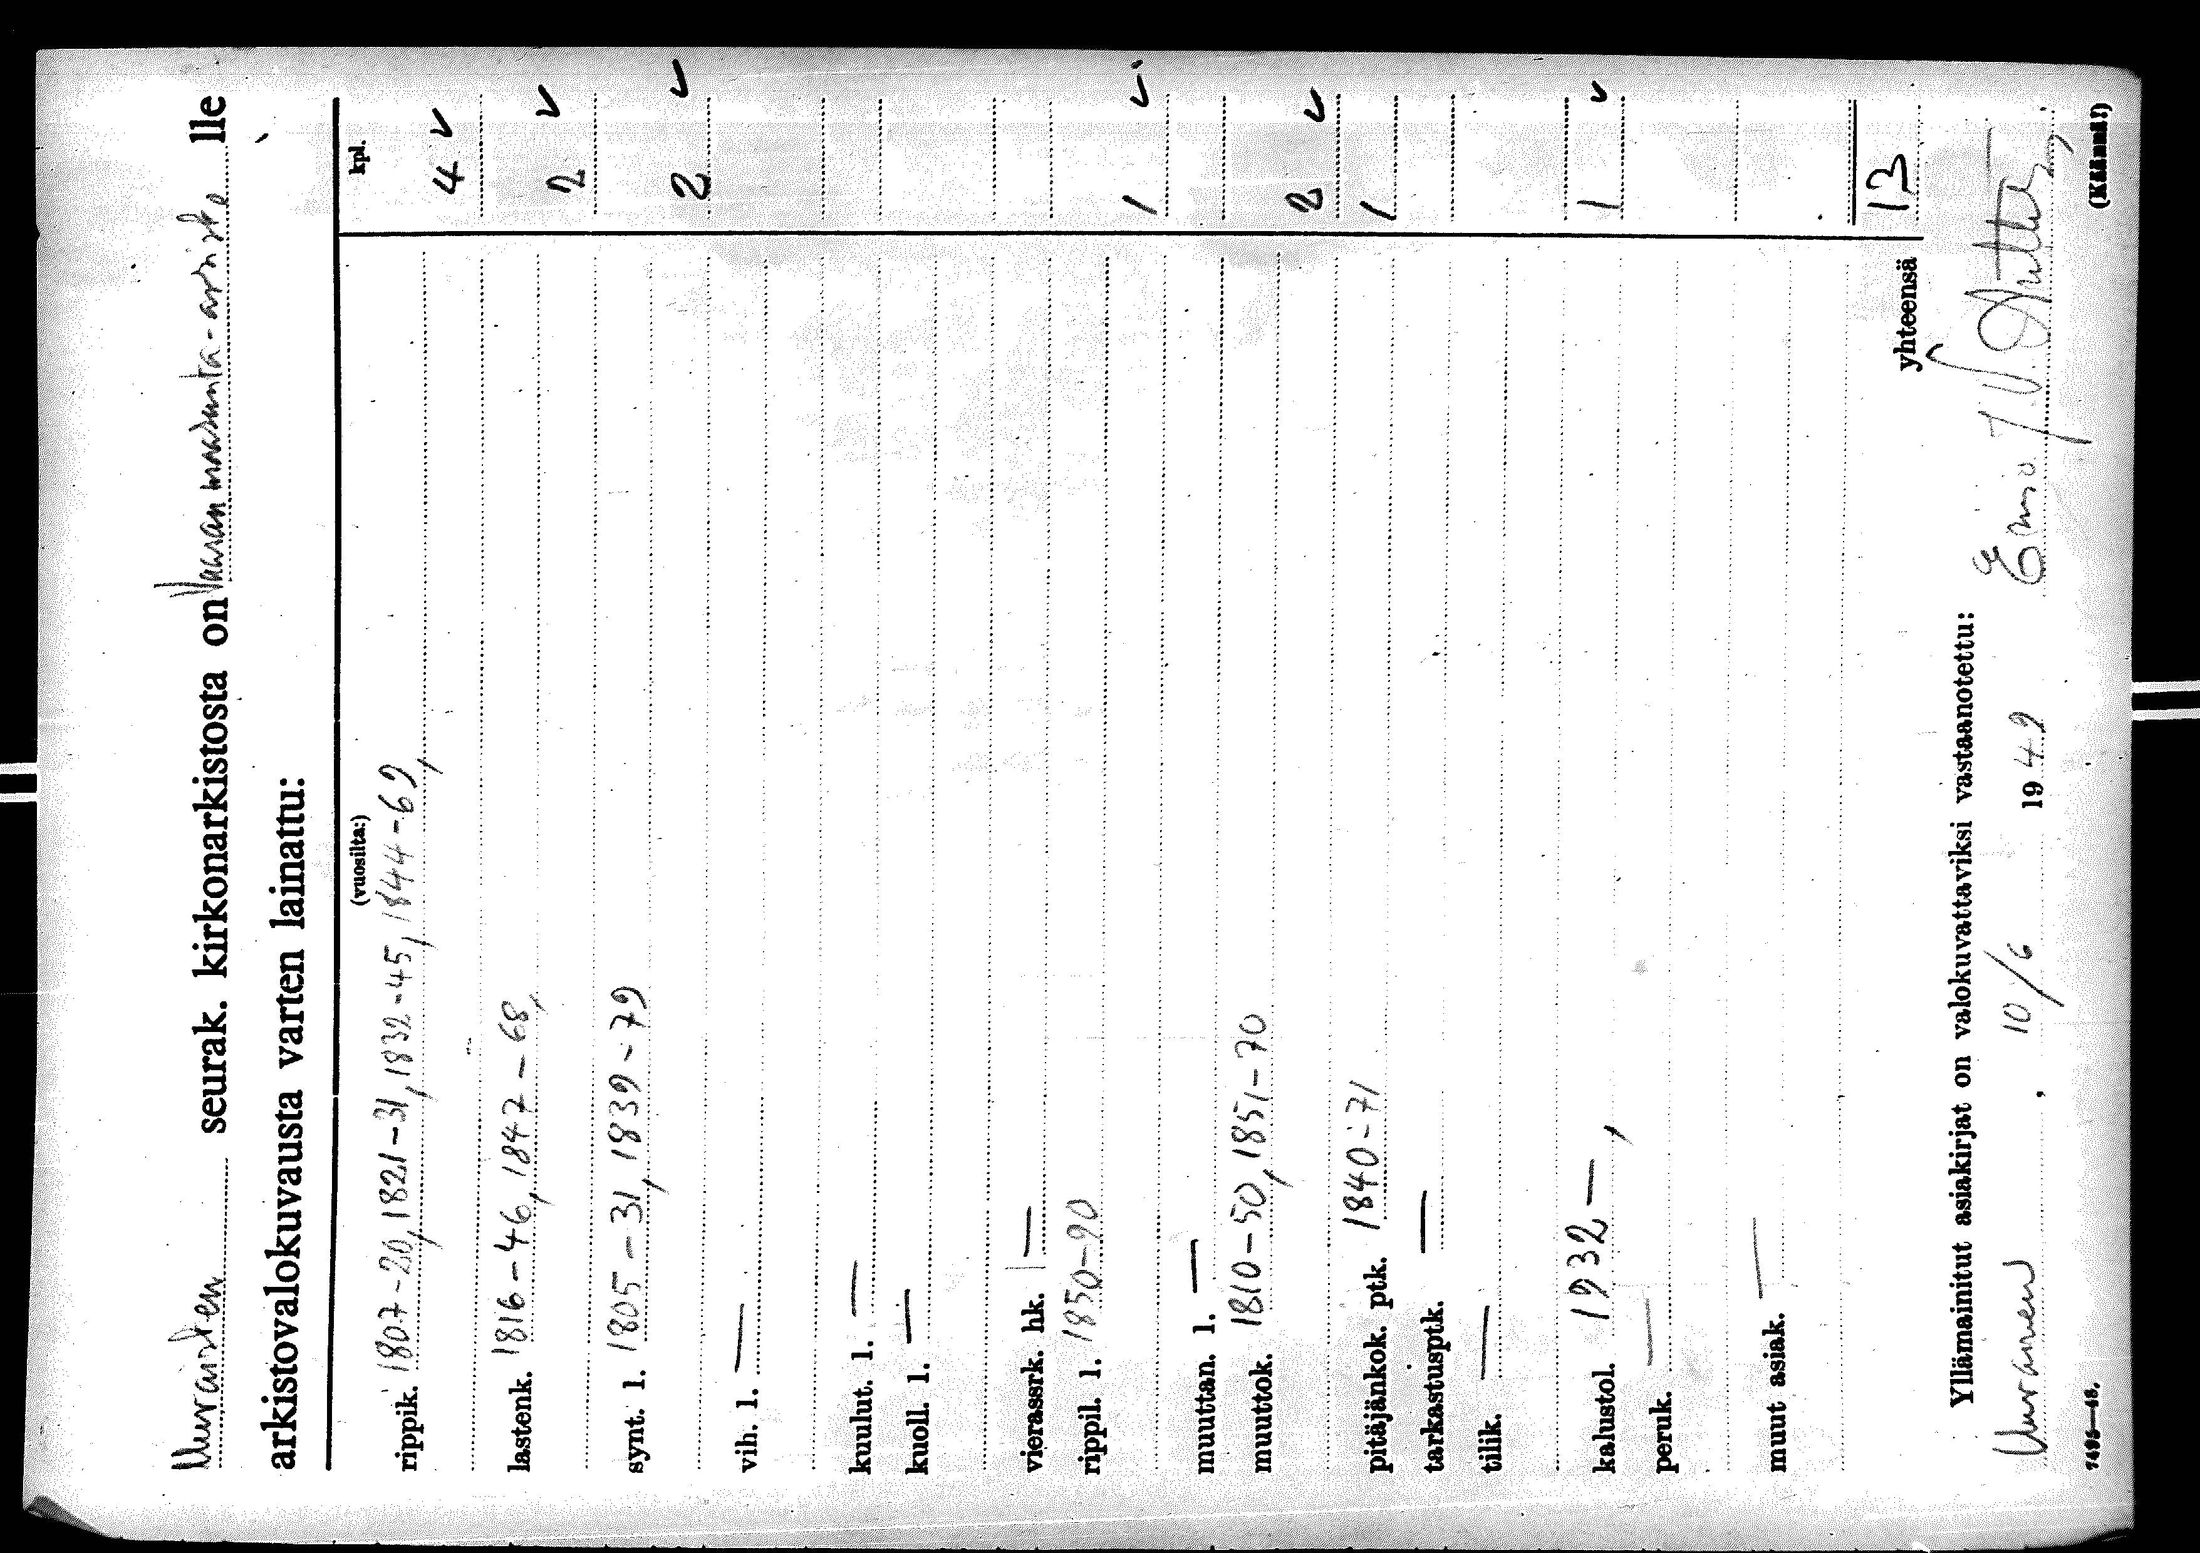 Muuraisten seurak. kirkonarkistosta on Vaasan maakunta-arkisto lle
arkistovalokuvausta varten lainattu:
(vuosilta:) kpl.
rippik. 1807-20, 1821-31, 1832-45, 1844-69, 4 v
lastenk. 1816-46, 1847-68, 2 v
synt. l. 1805-31, 1839-79 2 v
vih. l. —
kuulut. l. —
kuoll. l. —
vierassrk. hk. —
rippil. l. 1850-90 1 v
muuttan. l. —
muuttok. 1810-50, 1851-70 2 v
pitäjänkok. ptk. 1840-71 1
tarkastusptk. —
tilik. —
kalustol. 1932 —, 1 v
peruk. —
muut asiak. —
yhteensä 13
Yllämainitut asiakirjat on valokuvattaviksi vastaanotettu:
10/6 1949 Eino
7495—48. (Käännä!)